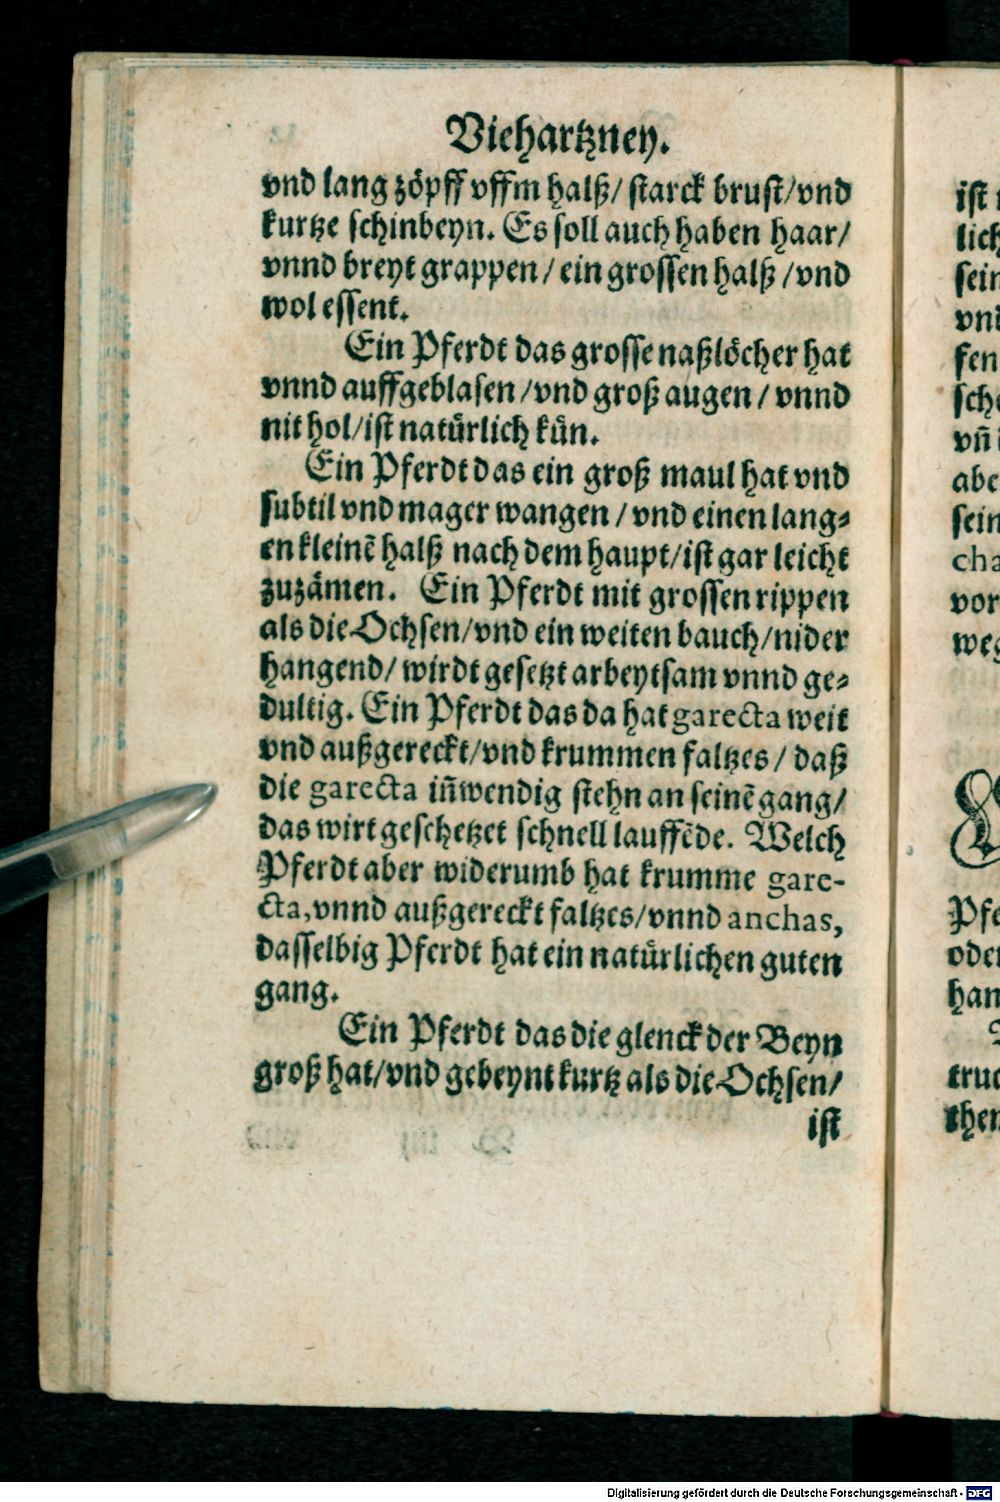 Viehartzney.
vnd lang zöpff vffm halß/ starck brust/vnd
kurtze schinbeyn. Es soll auch haben haar/
vnnd breyt grappen/ ein grossen halß/vnd
wol essent.
Ein Pferdt das grosse naßlöcher hat
vnnd auffgeblasen/vnd groß augen/ vnnd
nit hol/ist natürlich kün.
Ein Pferdt das ein groß maul hat vnd
subtil vnd mager wangen/vnd einen lang⸗
en kleinẽ halß nach dem haupt/ist gar leicht
zuzämen. Ein Pferdt mit grossen rippen
als die Ochsen/vnd ein weiten bauch/nider
hangend/ wirdt gesetzt arbeytsam vnnd ge⸗
dultig. Ein Pferdt das da hat garecta weit
vnd außgereckt/vnd krummen faltzes/ daß
die garecta iñwendig stehn an seinẽ gang/
das wirt geschetzet schnell lauffẽde. Welch
Pferdt aber widerumb hat krumme gare-
cta, vnnd außgereckt faltzes/vnnd anchas,
dasselbig Pferdt hat ein natürlichen guten
gang.
Ein Pferdt das die glenck der Beyn
groß hat/vnd gebeynt kurtz als die Ochsen/
ist
ist
lich
sein
vnd
fen
sche
vñ
abe
sein
cha
vor
weg
Pfe
oder
han
truc
then
Digitalisierung gefördert durch die Deutsche Forschungsgemeinschaft - DFG